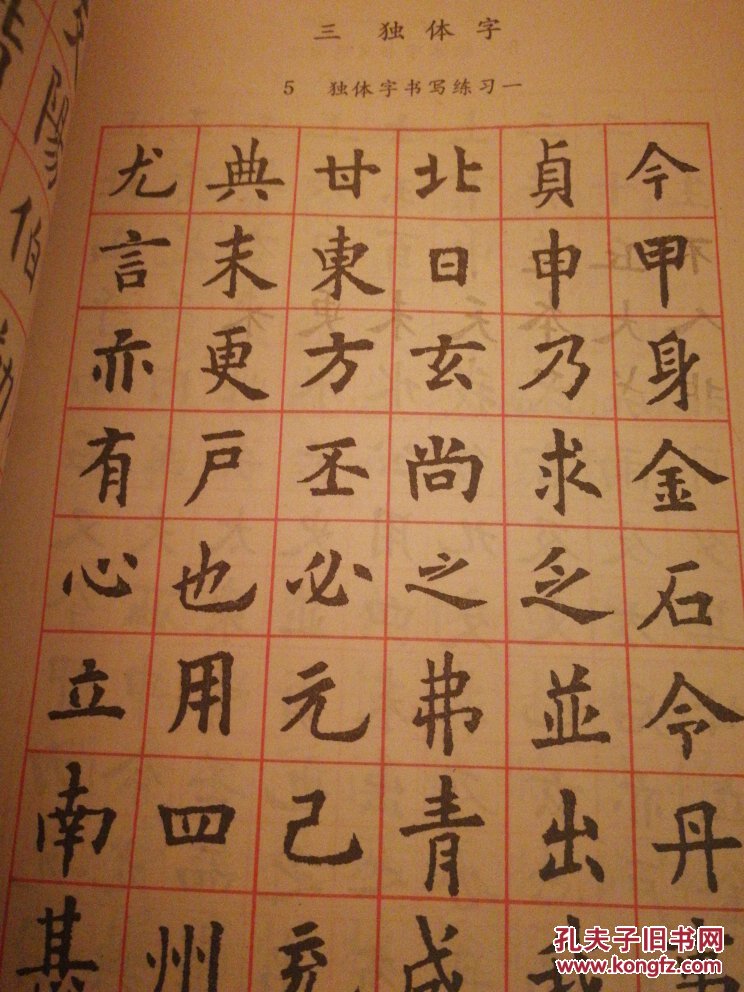 三 独体字
5 独体字书写练习一
尤典甘北貞今
言末東日申甲
亦更方玄乃身
有戸丕尚求金
心也必之乏石
立用元弗並令
南四己青出丹
其州充成我
伯
孔夫子旧书网
www.kongfz.com